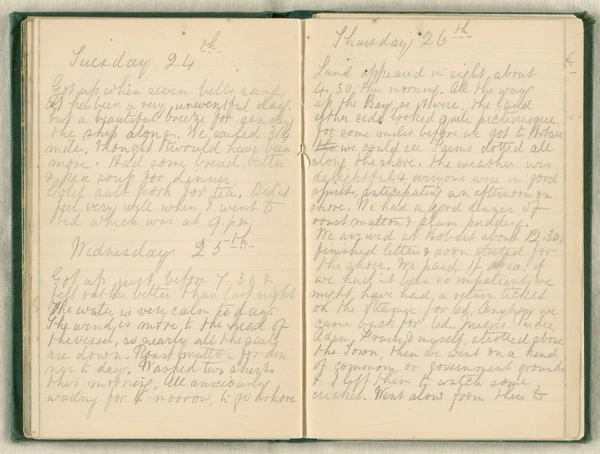 Tuesday 24th
Got up when seven bells rang,
It has been a very uneventful day.
but a beautiful breeze for sending
the ship along. We sailed 314
miles, thought it would have been
more. Had some bread, butter
& pea soup for dinner,
Cold salt pork for tea. Did not
feel very well when I went to
bed which was at 9. pm,
Wednesday 25th
Got up just before 7.30 &
felt rather better than last night
The water is very calm to day.
The wind is more to the head of
the vessel, so nearly all the sails
are down. Roast mutton for din
ner to day. Washed two shirts
this morning. All anxiously
waiting for to-morrow, to go ashore
Thursday 26th
Land appeared in sight about
4.30 this morning. All the way
up the Bay, as it were, the land
either side looked quite picturesque,
for some miles before we got to Hobart
we could see Farms dotted all
along the shore. The weather was
delightful & everyone were in good
spirits, anticipating an afternoon on
shore. We had a good dinner of
roast mutton & plum pudding.
We arrived at Hobart about 12-30.
finished letters & soon started for
the shore. We paid 1/- if
we had it been so impatient, we
might have had a return ticket
on the for 6d. Anyhow we
came back for 6d.
Adam, & myself, strolled above
the Town, then we went on a kind
of common, or government grounds
& I left them to watch some
cricket. Went alone from there to